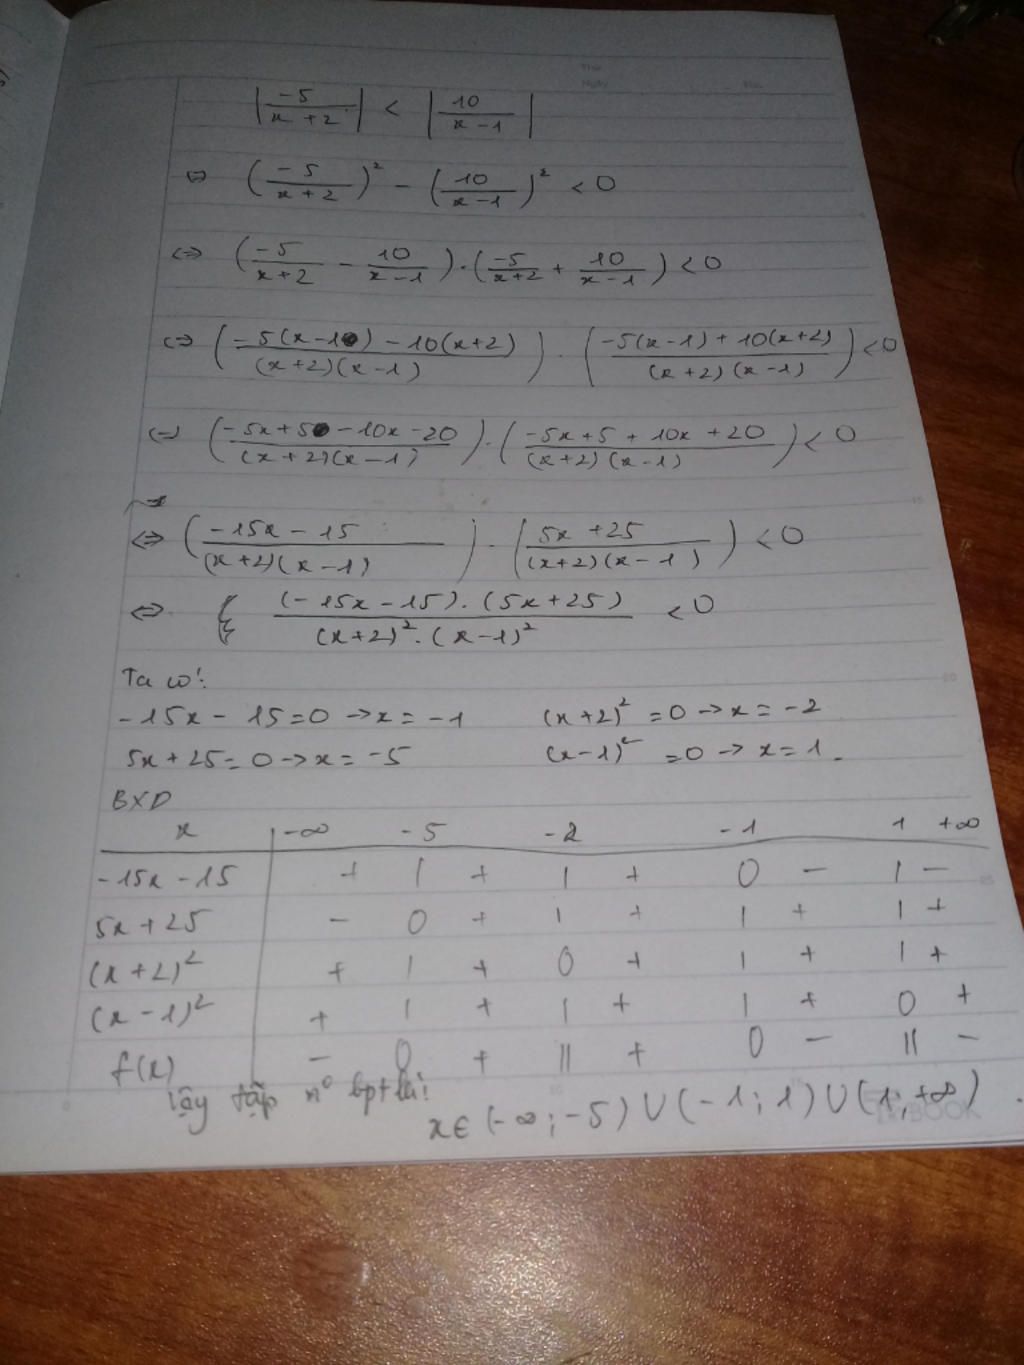 |-5/(x+2)| < |10/(x-1)|
⇔ (-5/(x+2))² - (10/(x-1))² < 0
⇔ (-5/(x+2) - 10/(x-1)) . (-5/(x+2) + 10/(x-1)) < 0
⇔ ((-5(x-1) - 10(x+2))/((x+2)(x-1))) . ((-5(x-1) + 10(x+2))/((x+2)(x-1))) < 0
⇔ ((-5x+5 - 10x - 20)/((x+2)(x-1))) . ((-5x+5 + 10x + 20)/((x+2)(x-1))) < 0
⇔ ((-15x - 15)/((x+2)(x-1))) . ((5x + 25)/((x+2)(x-1))) < 0
⇔ ((-15x-15).(5x+25))/((x+2)².(x-1)²) < 0
Ta có:
-15x - 15 = 0 → x = -1 (x+2)² = 0 → x = -2
5x + 25 = 0 → x = -5 (x-1)² = 0 → x = 1.
BXD
x -∞ -5 -2 -1 1 +∞
-15x - 15 + | + | + 0 - | -
5x + 25 - 0 + | + | + | +
(x+2)² + | + 0 + | + | +
(x-1)² + | + | + | + 0 +
f(x) - 0 + || + 0 - || -
Vậy tập n⁰ bpt là:
x ∈ (-∞; -5) ∪ (-1; 1) ∪ (1; +∞).